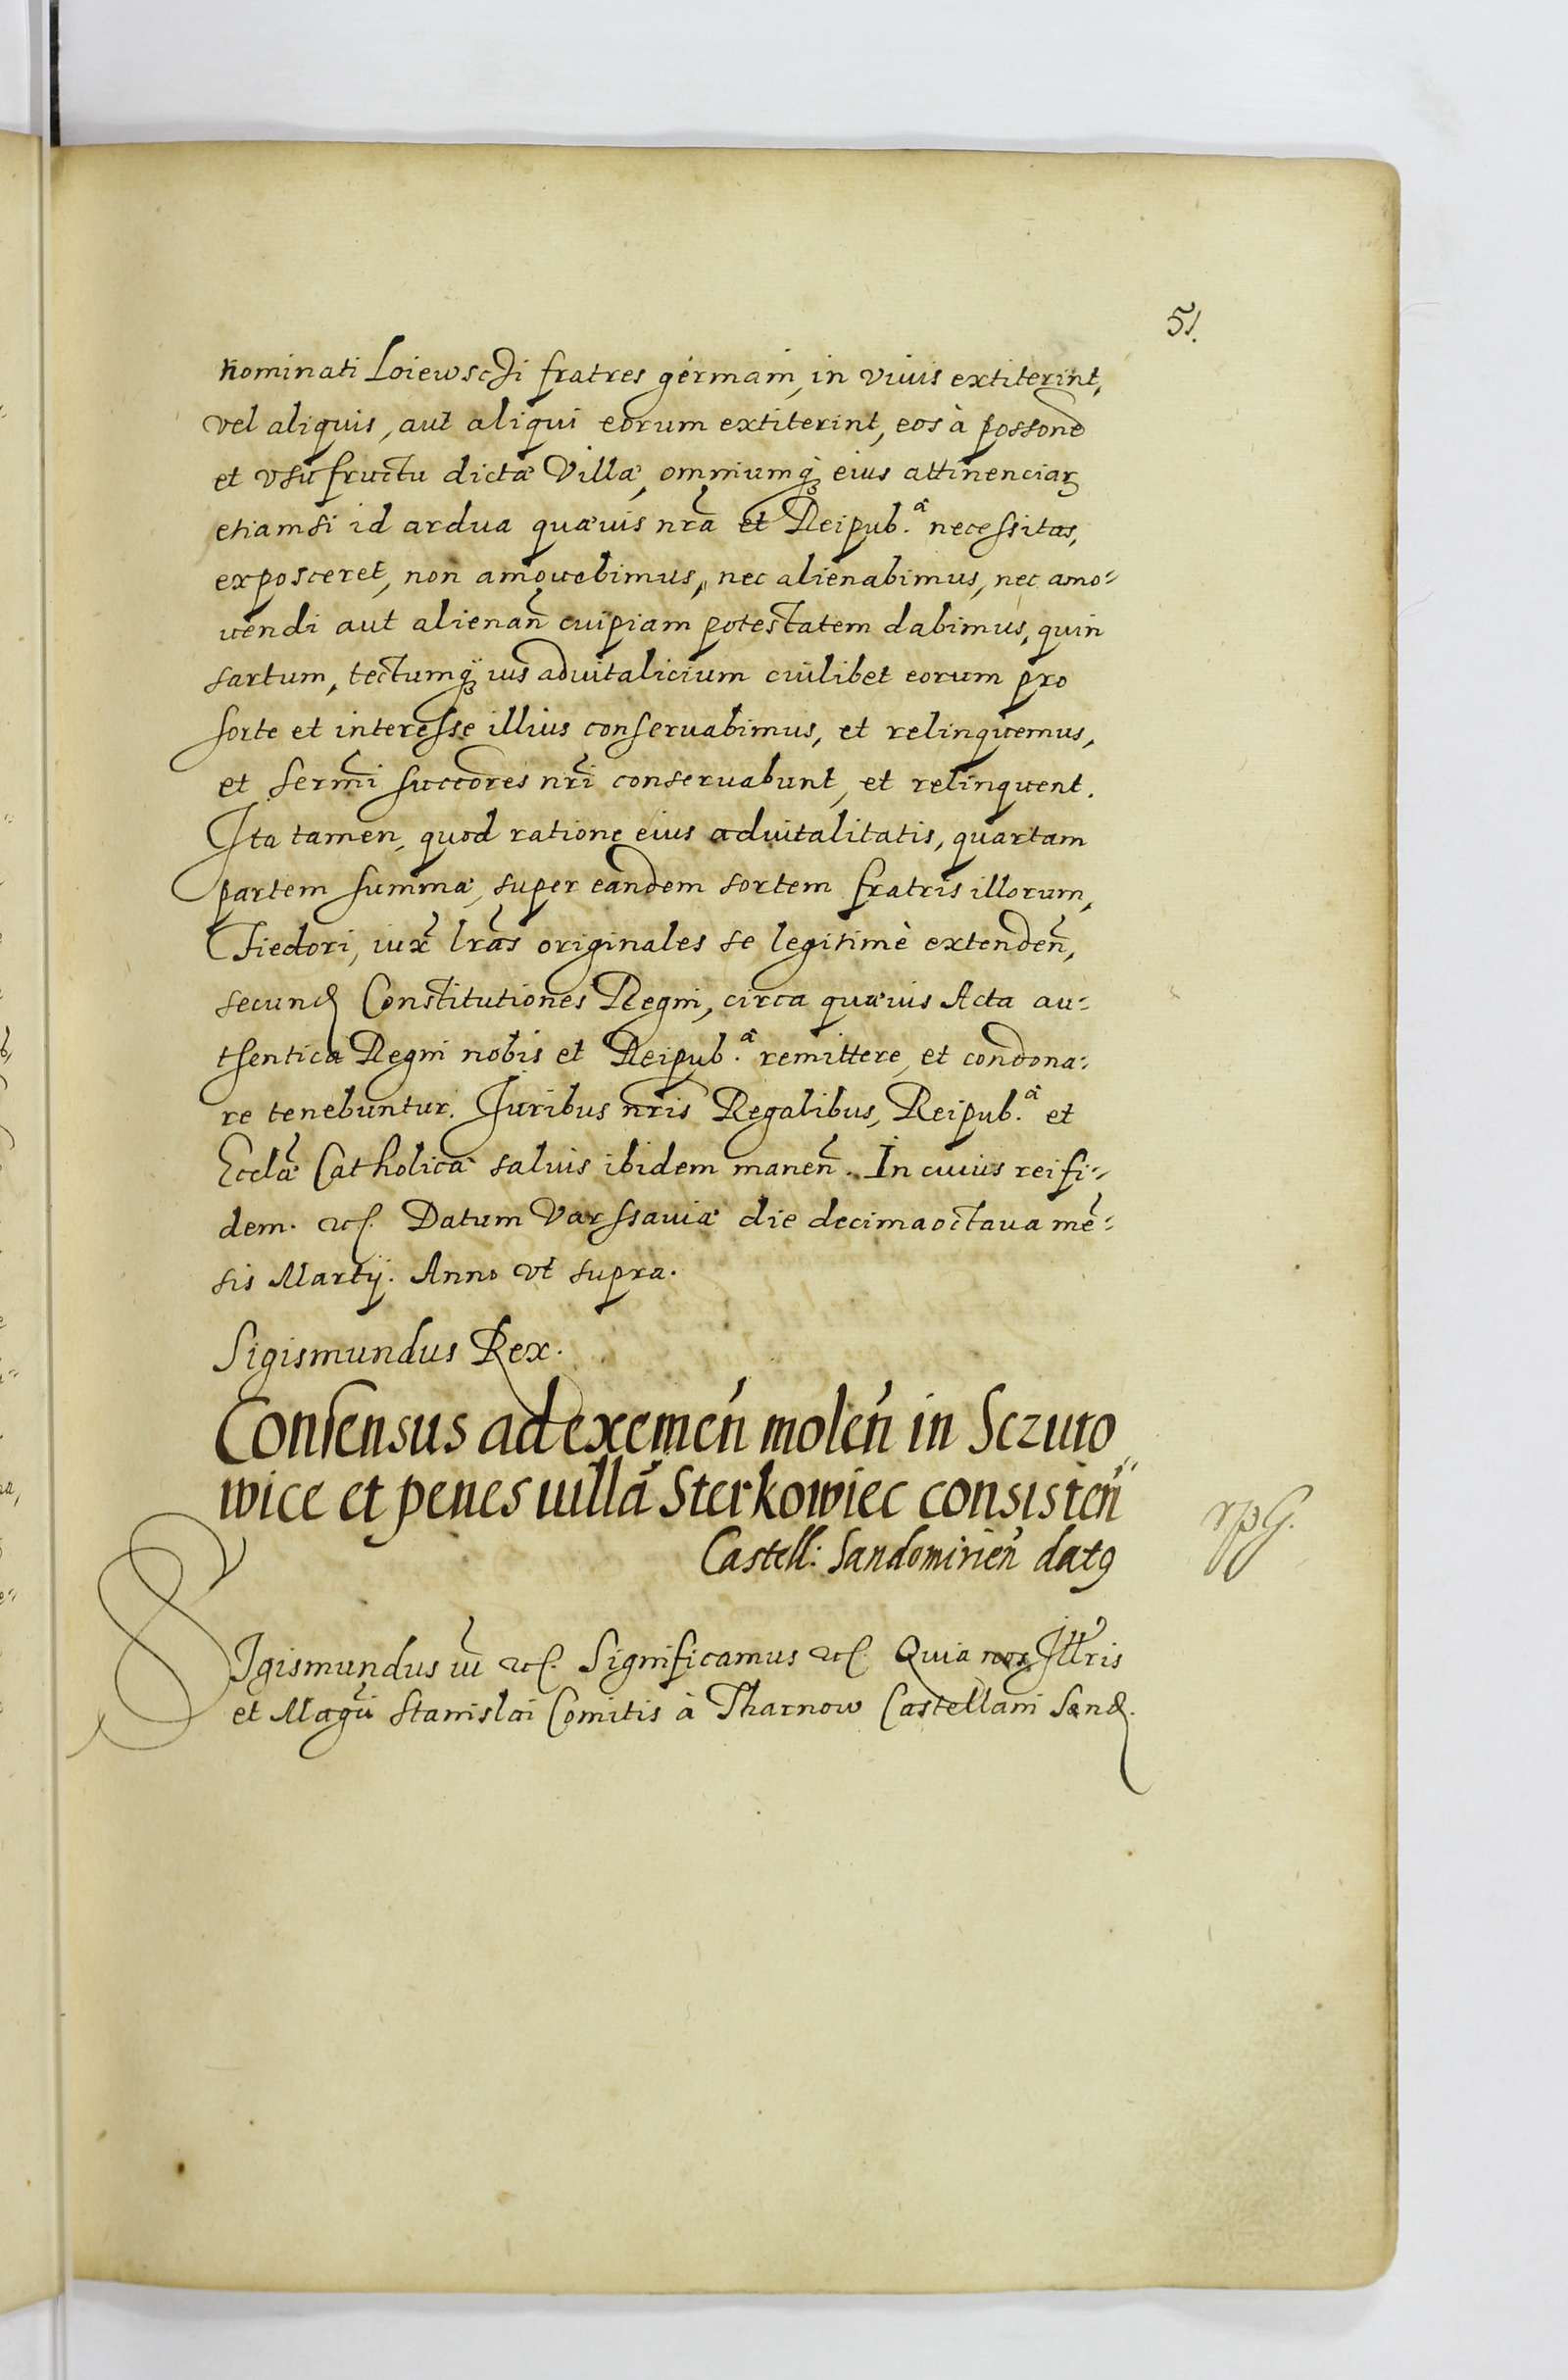 51.
nominati Loiewscÿi fratres germani, in viuis extiterint,
vel aliquis, aut aliqui eorum extiterint, eos à possone
et vsufructu dictæ Villæ, omniumq̃ꝫ eius attinenciarꝫ
etiamsi id ardua quæuis nr̃a et Reipub.ᵃ̂ necessitas,
exposceret, non amouebimus, nec alienabimus, nec amo⸗
uendi aut alienan̄ cuipiam potestatem dabimus, quin
sartum, tectumq̃ꝫ ius aduitalicium cuilibet eorum pro
sorte et interesse illius conseruabimus, et relinquemus,
et serm̃i succores nr̃i conseruabunt, et relinquent.
Ita tamen, quod ratione eius aduitalitatis, quartam
partem summæ, super eandem sortem fratris illorum,
Fiedori, iux̃ lr̃as originales se legitimè extenden̄,
secund Constitutiones Regni, circa quæuis Acta au⸗
thentica Regni nobis et Reipub.ᵃ̂ remittere, et condona⸗
re tenebuntur. Iuribus nr̃is Regalibus, Reipub.ᵃ̂ et
Eccl̃æ Catholicæ saluis ibidem manen̄. In cuius rei fi⸗
dem. etc. Datum Varssauiæ die decima octaua mē⸗
sis Martij. Anno vt supra.
Sigismundus Rex.
Consensus ad exemen̄ molen̄ in Sczuro
wice et penes uillā Sterkowiec consisten̄
Castell: Sandomirien̄ dat9
rpG.
Sigismundus iii etc. Significamus etc. Quia nos Illr̃is
et Magn̄i Stanislai Comitis à Tharnow Castellani Sand.